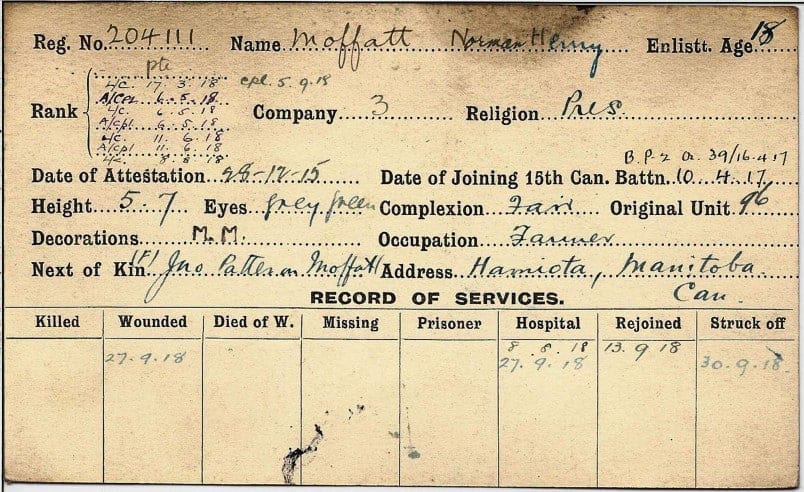 Reg. No. 204111 Name Moffatt Norman Henry Enlistt. Age 18
Pte
L/C. 17. 3. 18 Cpl. 5. 9. 18
A/Cpl 6. 5. 18
L/C. 6. 5. 18
Rank Company 3 Religion Pres.
A/Cpl. 6. 5. 18
L/C. 11. 6. 18
A/Cpl 11. 6. 18
L/C. 8 8 18
B.P-2 O. 39/16.4.17
Date of Attestation 28-12-15 Date of Joining 15th Can. Battn. 10. 4. 17.
Height 5. 7 Eyes Grey Green Complexion Fair Original Unit 96
Decorations M.M. Occupation Farmer
Next of Kin (F) Jno Moffatt Address Hamiota, Manitoba.
Can.
RECORD OF SERVICES.
Killed Wounded Died of W. Missing Prisoner Hospital Rejoined Struck off
8. 8. 18 13. 9 18
27. 9. 18 27. 9. 18 30. 9. 18.